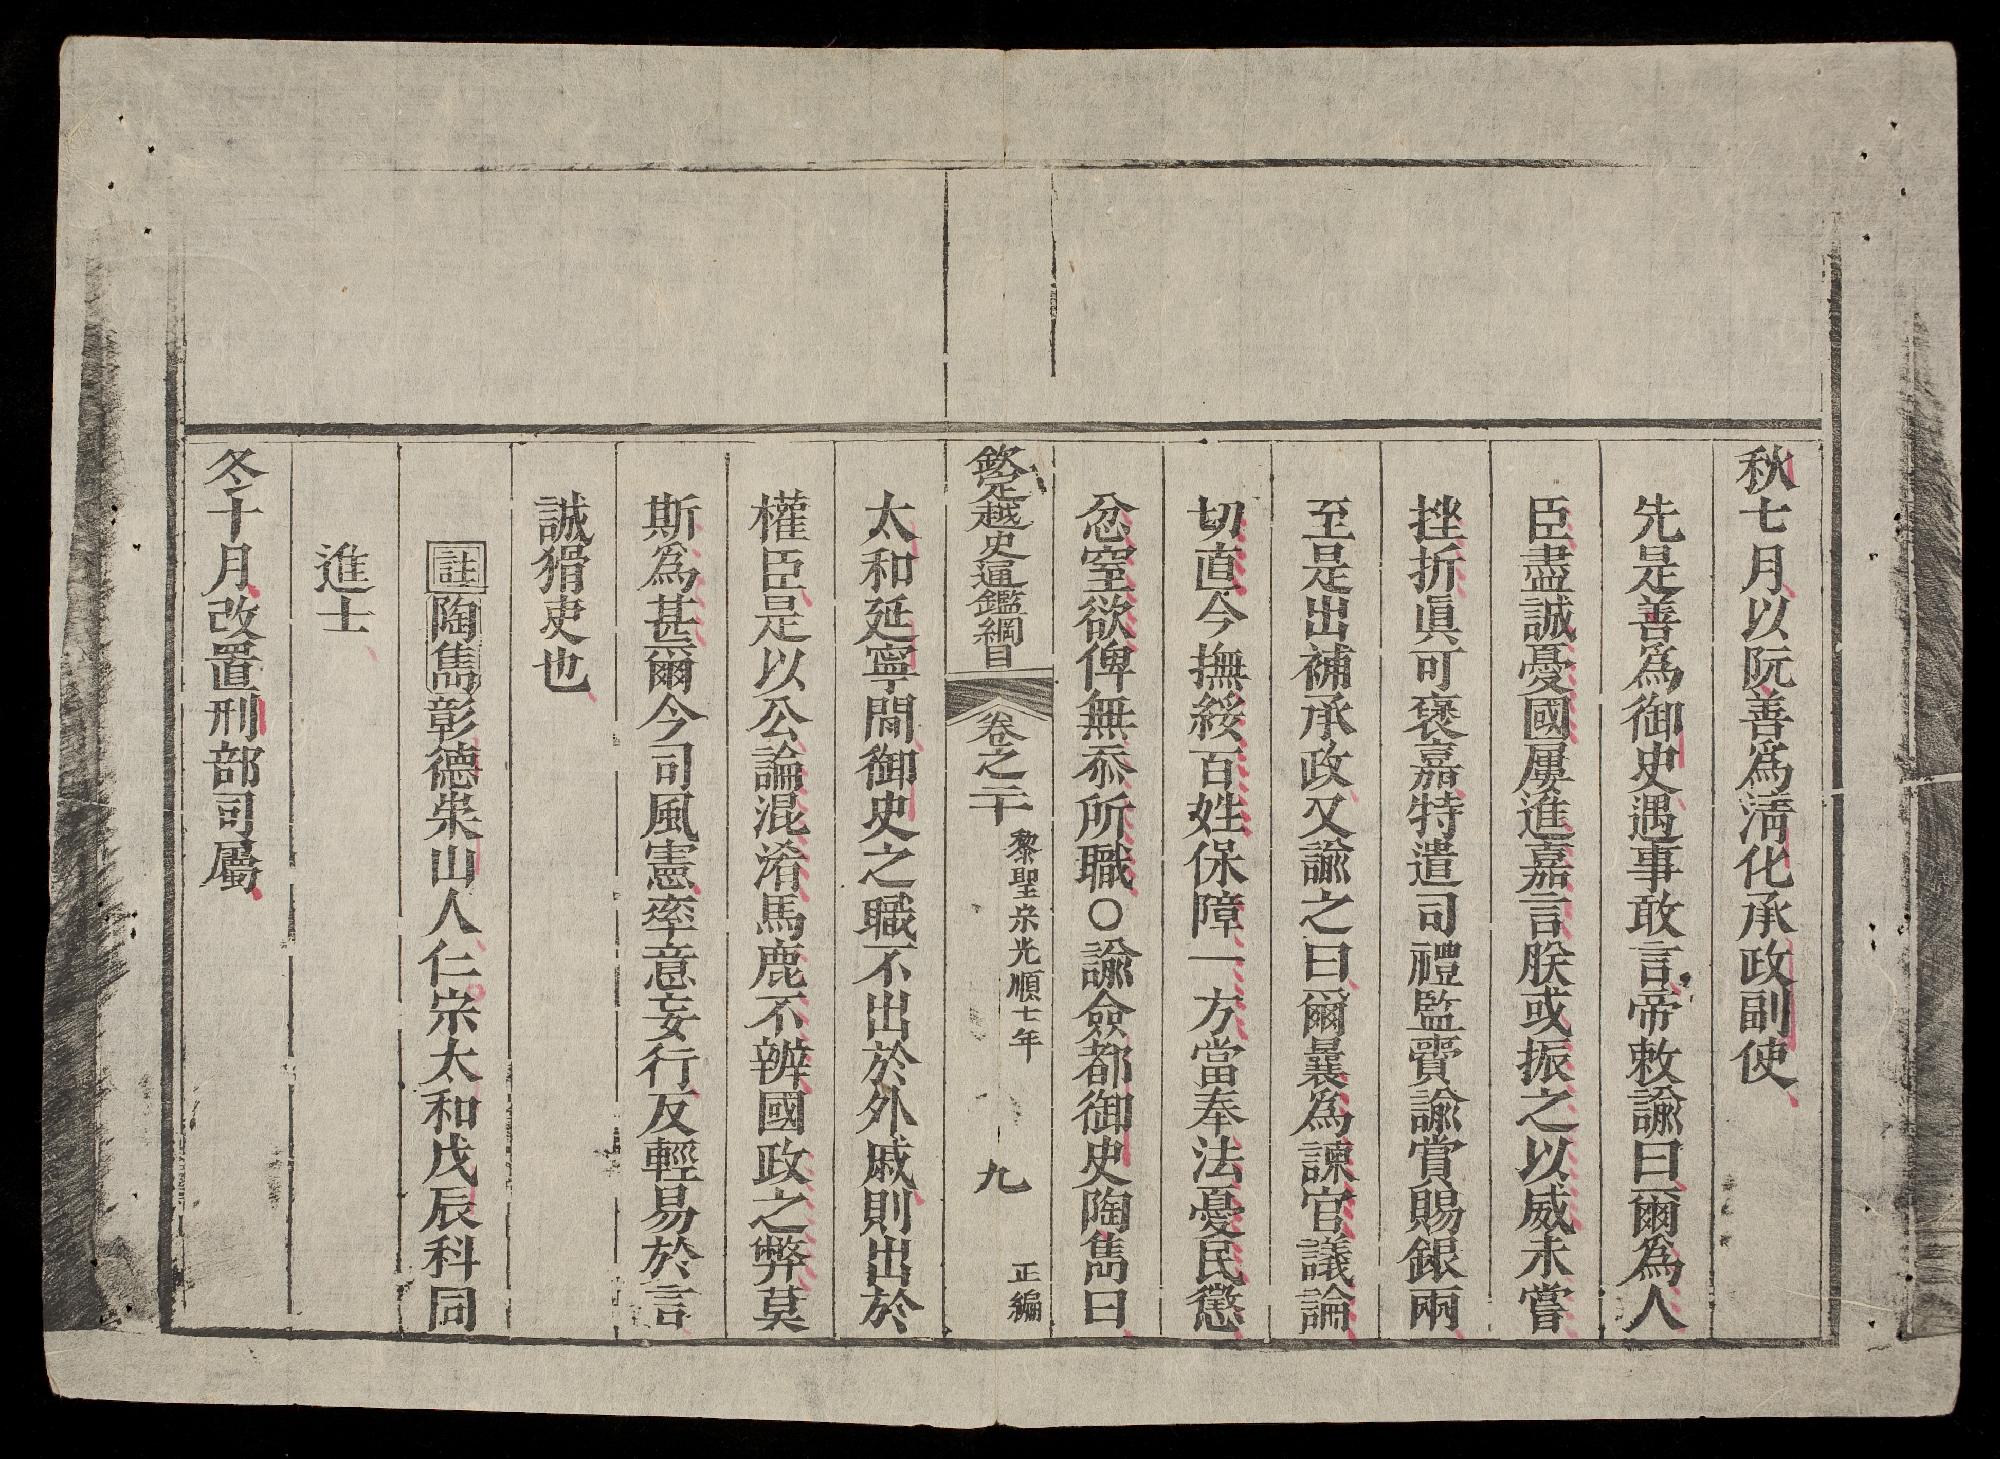 秋七月以阮善爲淸化承政副使
先是善爲御史遇事敢言帝敕諭曰爾爲人
臣盡誠憂國屢進嘉言朕或振之以威未嘗
挫折眞可褒嘉特遣司禮監賫諭賞賜銀兩
至是出補承政又諭之曰爾曩爲諫官議論
切直今撫綏百姓保障一方當奉法憂民懲
忿窒欲俾無忝所職〇諭僉都御史陶雋曰
欽定越史通鑑綱目 卷之二十 黎聖宗光順七年 九 正編
太和延寧間御史之職不出於外戚則出於
權臣是以公論混淆馬鹿不辨國政之弊莫
斯爲甚爾今司風憲率意妄行反輕易於言
誠猾吏也
註陶雋彰德崇山人仁宗太和戊辰科同
進士
冬十月改置刑部司屬